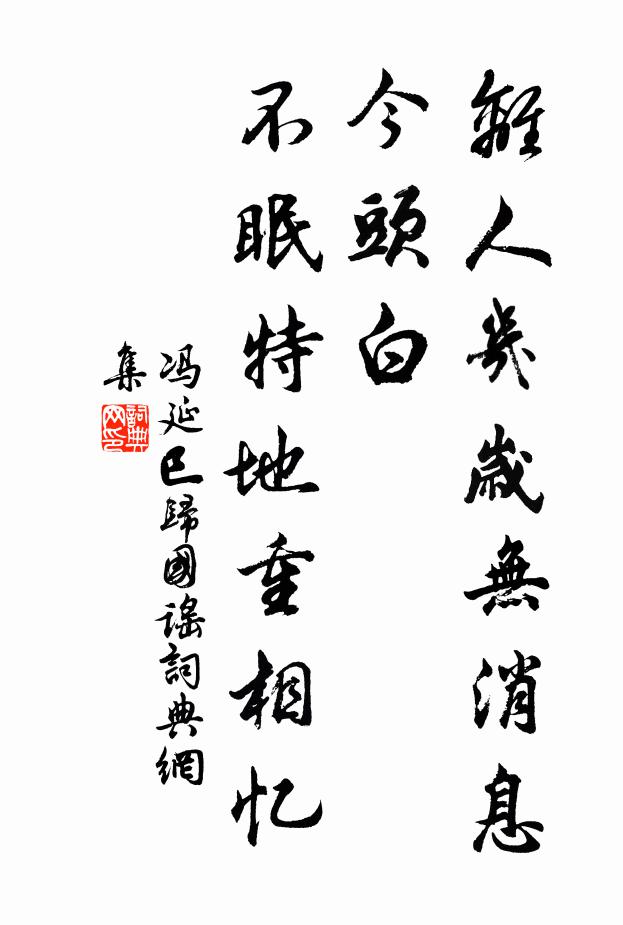 離人幾歲無消息
今頭白
不眠特地重相忆
冯延巳歸國謠詞典網
集
詞典
网印